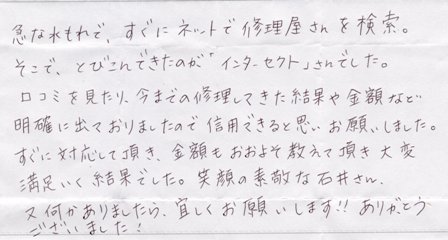 急な水もれで、すぐにネットで修理屋さんを検索。
そこで、とびこんできたのが「インターセクト」さんでした。
口コミを見たり、今までの修理してきた結果や金額など
明確に出ておりましたので信用できると思いお願いしました。
すぐに対応して頂き、金額もおおよそ教えて頂き大変
満足いく結果でした。笑顔の素敵な石井さん、
又何かありましたら、宜しくお願いします!! ありがとう
ございました!